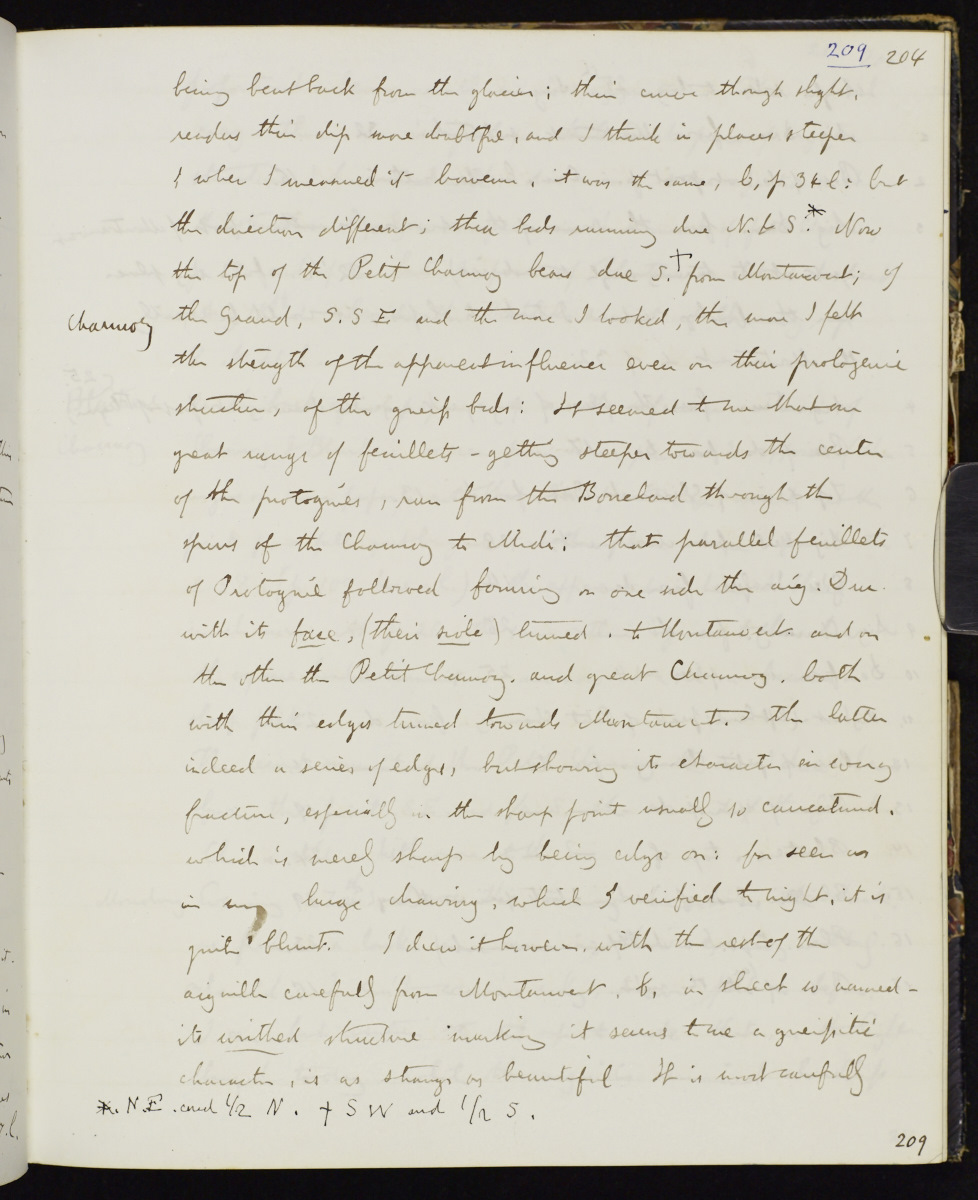 209 204
being beat back from the glacier; their curve though slight,
renders their dip more doubtful, and I think in places steeper
& when I measured it however, it was the same, b, p 34 l: but
the direction different; these beds running due N. & S.* Now
the top of the Petit Charmoz bears due S.† from Montanvert; of
Charmoz
the Grand, S. S E. and the more I looked, the more I felt
the strength of the apparent influence even on their protogenic
structure, of the gneiss beds: It seemed to me that one
great range of feuillets - getting steeper towards the center
of the protogines, ran from the through the
spurs of the Charmoz to Midi: that parallel feuillets
of Protogine followed forming on one side the aig. Dru.
with its face, (their side) turned. to Montanvert. and on
the other the Petit Charmoz. and great Charmoz. both
with their edges turned towards Montanvert. the latter
indeed a series of edges, but showing its character in every
fracture, especially in the sharp point usually so caricatured.
which is merely sharp by being edge on: for seen as
in my large drawing, which I verified to night, it is
quite blunt. I drew it however, with the rest of the
aiguille carefully from Montanvert, b, in sheet so named -
its writhed structure marking it seems to me a gneissitic
character, is as strange as beautiful It is most carefully
* N.E. and 1/2 N. † S W and 1/2 S.
209